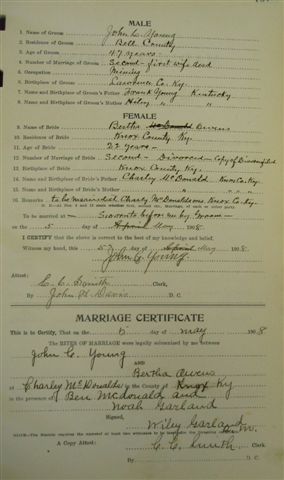 MALE
1. Name of Groom John C. Young
2. Residence of Groom Bell County
3. Age of Groom 47 years
4. Number of Marriage of Groom Second - first wife dead
5. Occupation Mining
6. Birthplace of Groom Lawrence Co. Ky.
7. Name and Birthplace of Groom's Father Frank Young Kentucky
8. Name and Birthplace of Groom's Mother " "
FEMALE
9. Name of Bride Bertha McDonald Owens
10. Residence of Bride Knox County Ky.
11. Age of Bride 22 years
12. Number of Marriage of Bride Second - Divorced - Copy of Divorce filed
13. Birthplace of Bride Knox County Ky.
14. Name and Birthplace of Bride's Father Charley McDonald Knox Co. Ky.
15. Name and Birthplace of Bride's Mother " " "
16. Remarks to be married at Charly McDonalds Knox Co. Ky
To be married at Sworn to before me by groom
on the 5 day of May 1908
I CERTIFY that the above is correct to the best of my knowledge and belief.
Witness my hand, this 5 day of May 1908
John C. Young
Attest:
C. C. Smith Clerk,
By John H. Davis D. C.
MARRIAGE CERTIFICATE
This is to Certify, That on the 5 day of may 1908
The RITES OF MARRIAGE were legally solemnized by me between
John C. Young
AND
Bertha Owens
at Charley McDonalds in the County of Knox Ky
in the presence of Ben McDonald and
Noah Garland
Signed, Wiley Garland
A Copy Attest: C. C. Smith Clerk
By D. C.